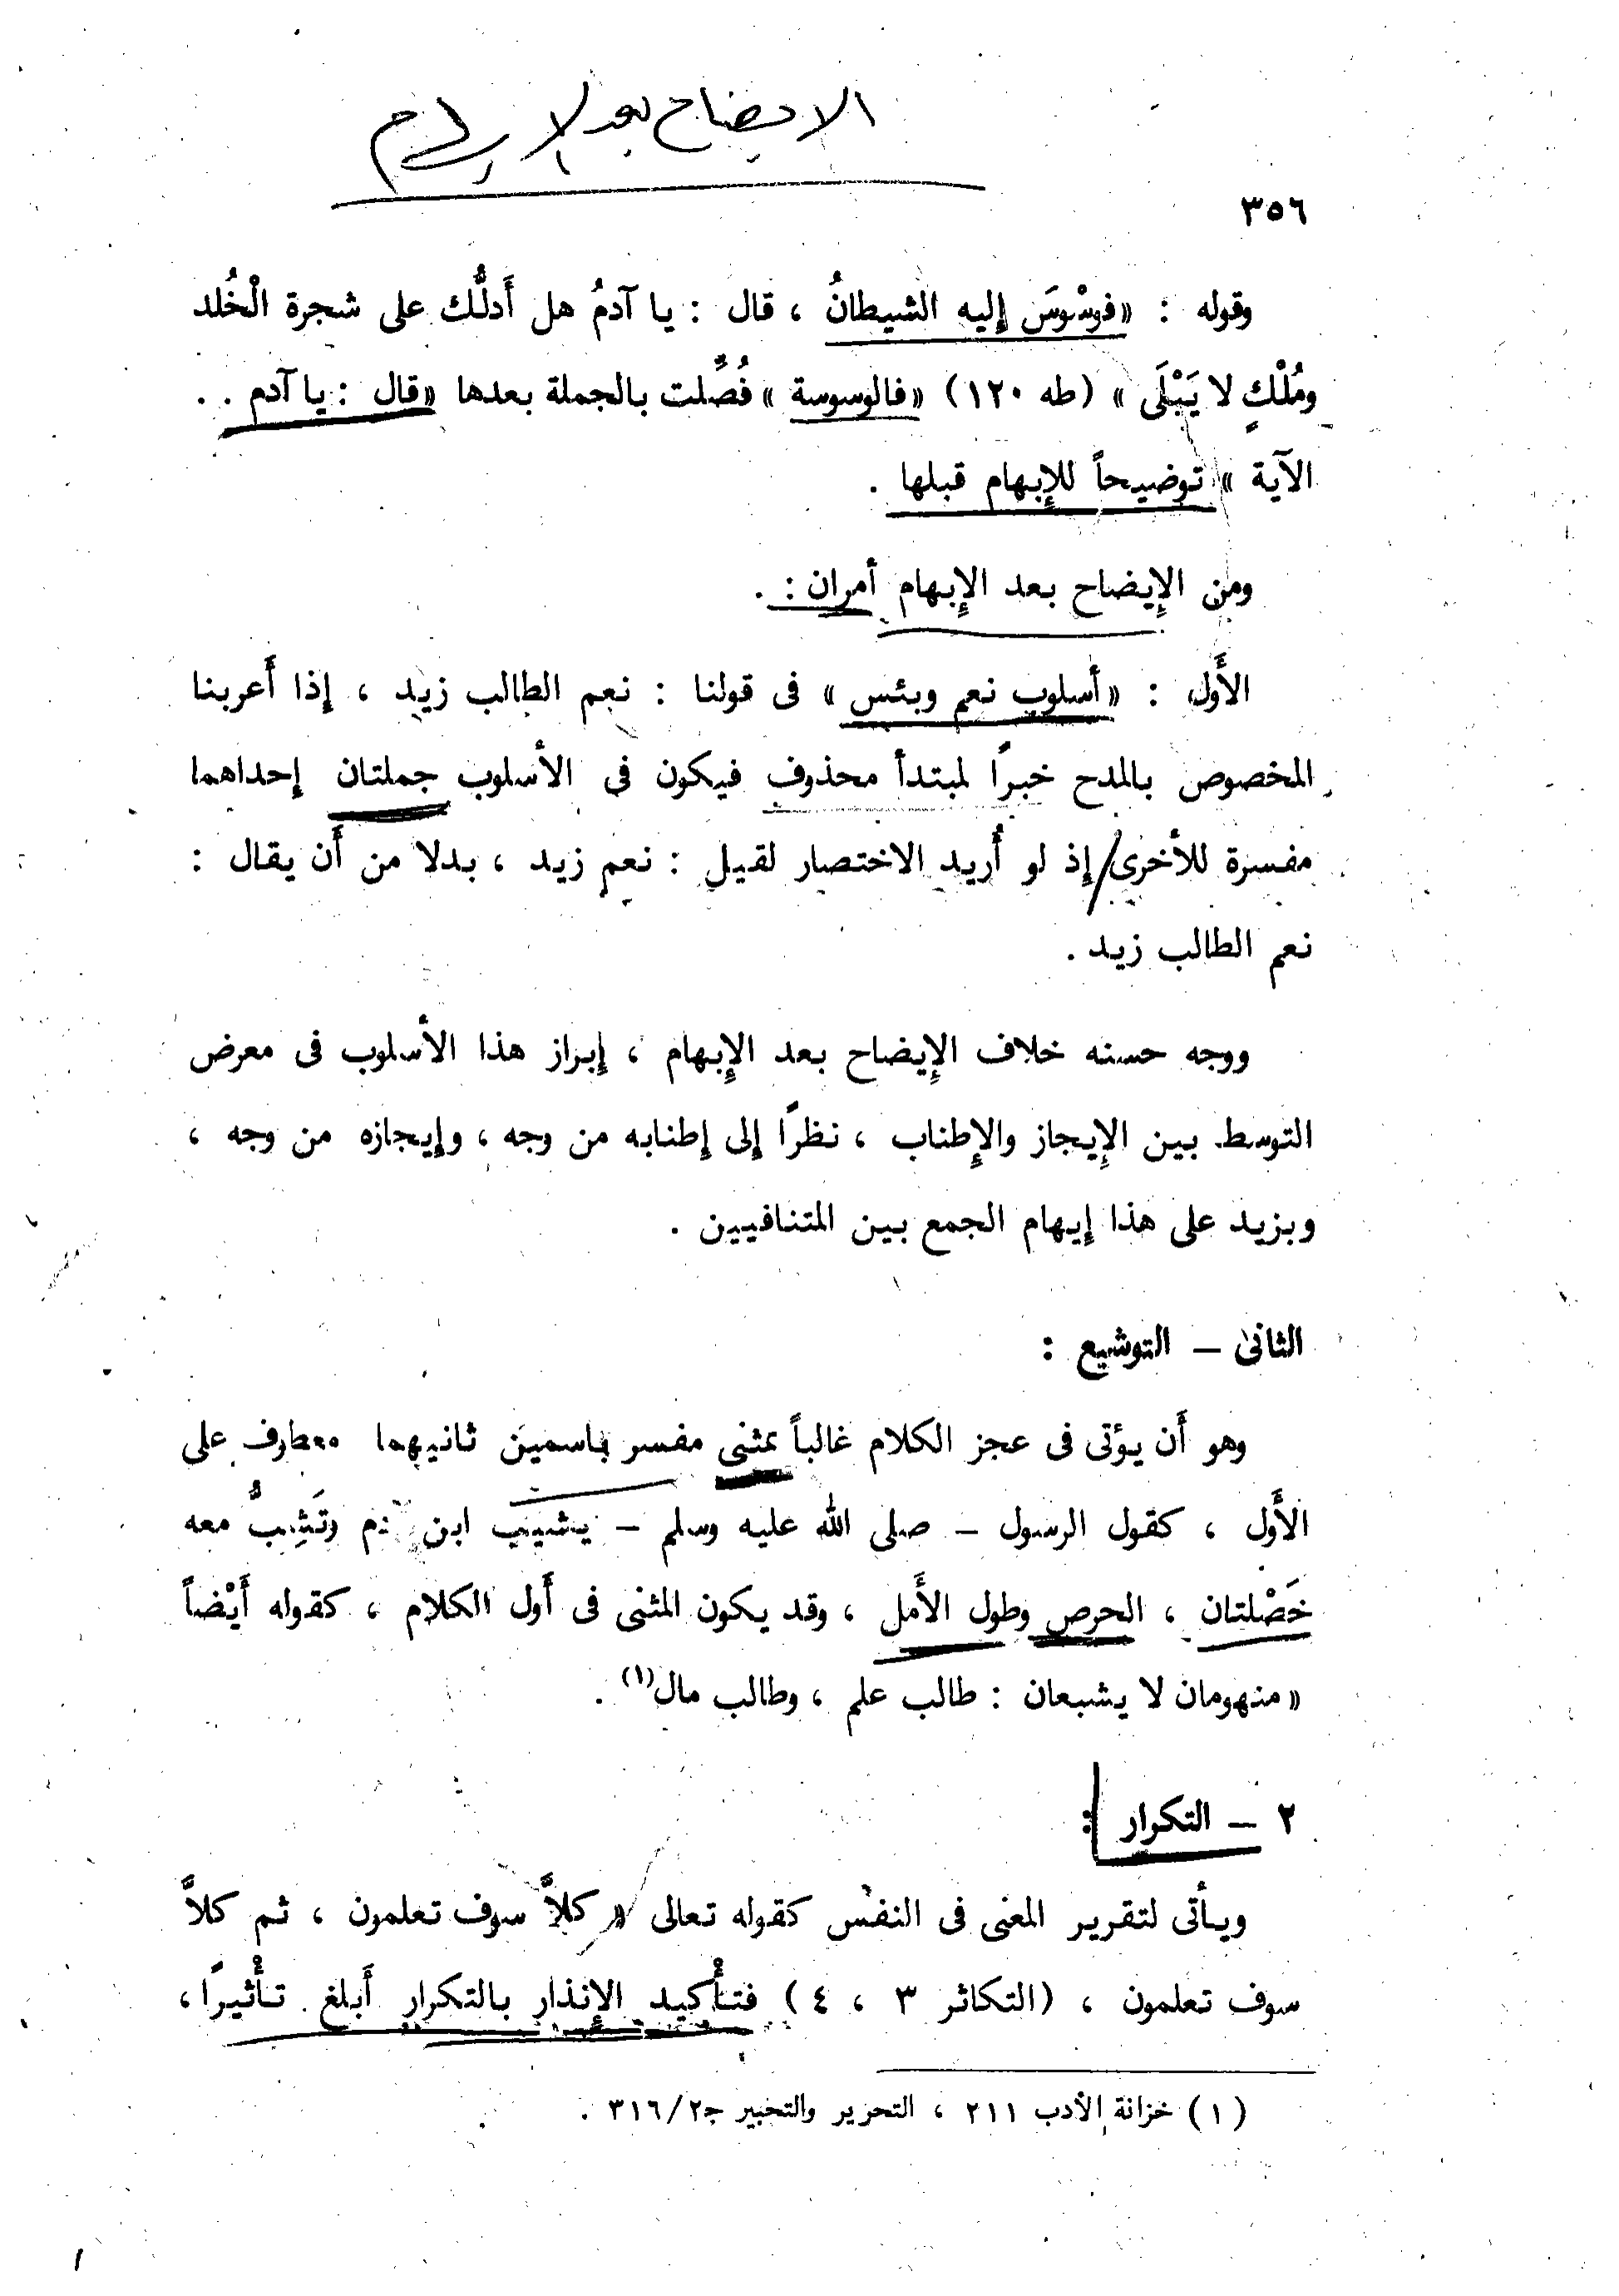 الايضاح بعد الإبهام
٣٥٦
وقوله : « فوسْوسَ إليه الشيطانُ ، قال : يا آدمُ هل أَدلُّك على شجرة الْخُلد
ومُلْكٍ لا يَبْلَى » ( طه ١٢٠ ) « فالوسوسة » فُصِّلت بالجملة بعدها « قال : يا آدم . .
الآية » توضيحاً للإِبهام قبلها .
ومن الإِيضاح بعد الإِبهام أمران : .
الأَول : « أسلوب نعم وبئس » فى قولنا : نعم الطالب زيد ، إذا أَعربنا
المخصوص بالمدح خبرًا لمبتدأ محذوف فيكون فى الأسلوب جملتان إحداهما
مفسرة للأخرى / إذ لو أُريد الاختصار لقيل : نعم زيد ، بدلا من أَن يقال :
نعم الطالب زيد .
ووجه حسنه خلاف الإِيضاح بعد الإِبهام ، إبراز هذا الأسلوب فى معرض
التوسط بين الإِيجاز والإِطناب ، نظرًا إلى إطنابه من وجه ، وإيجازه من وجه ،
ويزيد على هذا إيهام الجمع بين المتنافيين .
الثانى – التوشيع :
وهو أَن يؤتى فى عجز الكلام غالباً بمثنى مفسر باسمين ثانيهما معطوف على
الأَول ، كقول الرسول – صلى الله عليه وسلم – يشيب ابن آدم وتَشِبُّ معه
خَصْلتان ، الحرص وطول الأَمل ، وقد يكون المثنى فى أَول الكلام ، كقوله أَيْضاً
« منهومان لا يشبعان : طالب علم ، وطالب مال (١) .
٢ – التكرار :
ويأتى لتقرير المعنى فى النفس كقوله تعالى « كلاَّ سوف تعلمون ، ثم كلاَّ
سوف تعلمون ، ( التكاثر ٣ ، ٤ ) فتأْكيد الإِنذار بالتكرار أَبلغ تأْثيرًا ،
( ١ ) خزانة الأدب ٢١١ ، التحرير والتحبير ج‍٢/٣١٦ .